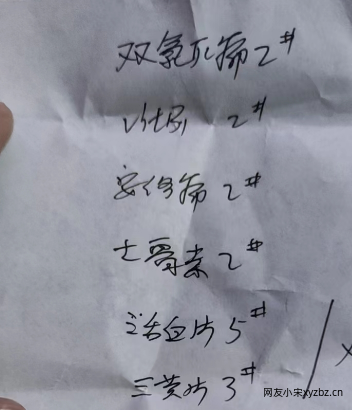 双氯灭痛 2#
2#
安络痛 2#
土霉素 2#
活血片 5#
三黄片 3#
网友小宋xyzbz.cn